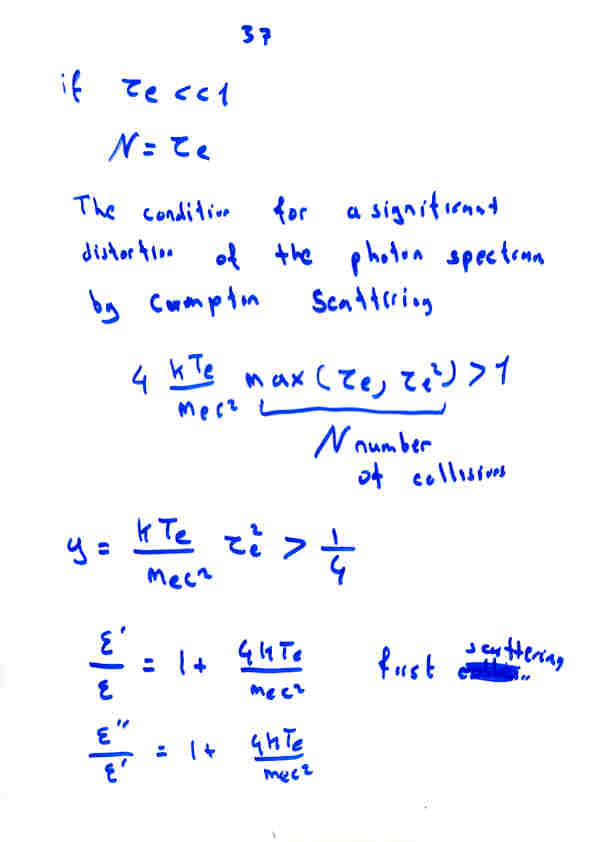 37
if τe << 1
N = τe
The condition for a significant
distortion of the photon spectrum
by Compton Scattering
4 kTe/mec² max(τe, τe²) > 1
N number
of collisions
y = kTe/mec² τe² > 1/4
ε'/ε = 1 + 4kTe/mec² first scattering
ε''/ε' = 1 + 4kTe/mec²